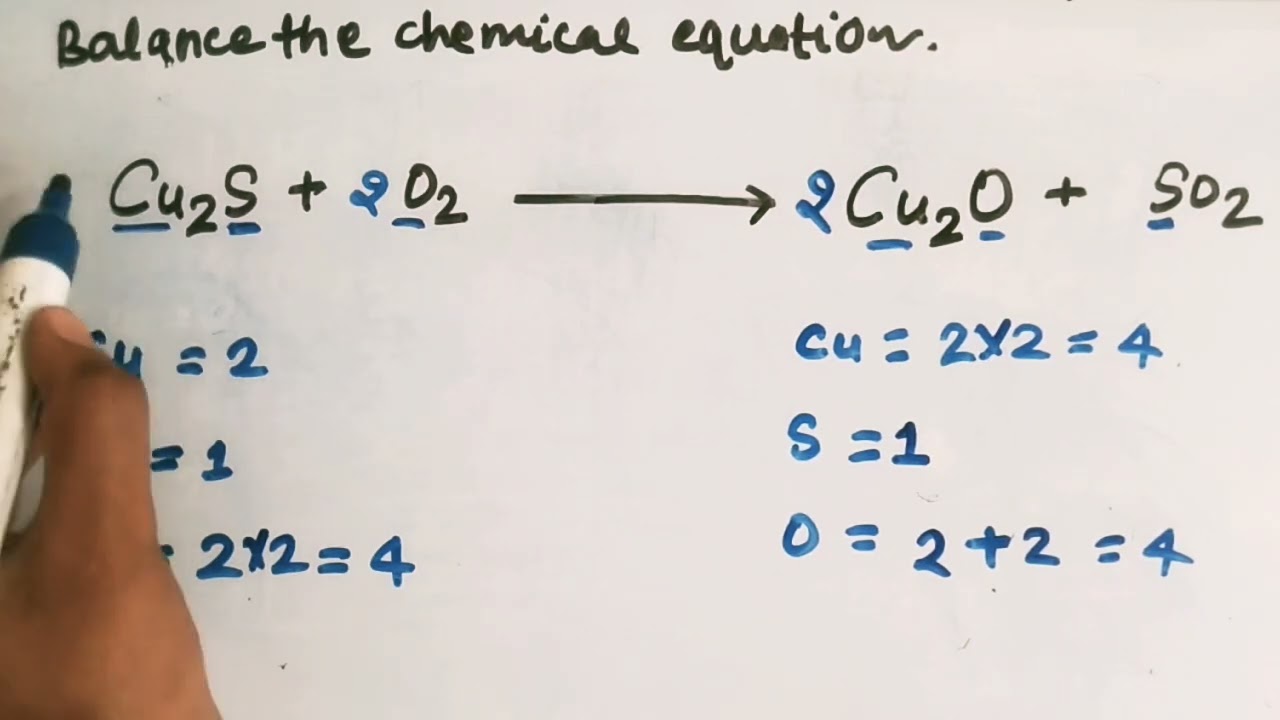 Balance the chemical equation.
Cu2S + 2O2 → 2Cu2O + SO2
= 2 Cu = 2×2 = 4
= 1 S = 1
2×2 = 4 O = 2+2 = 4